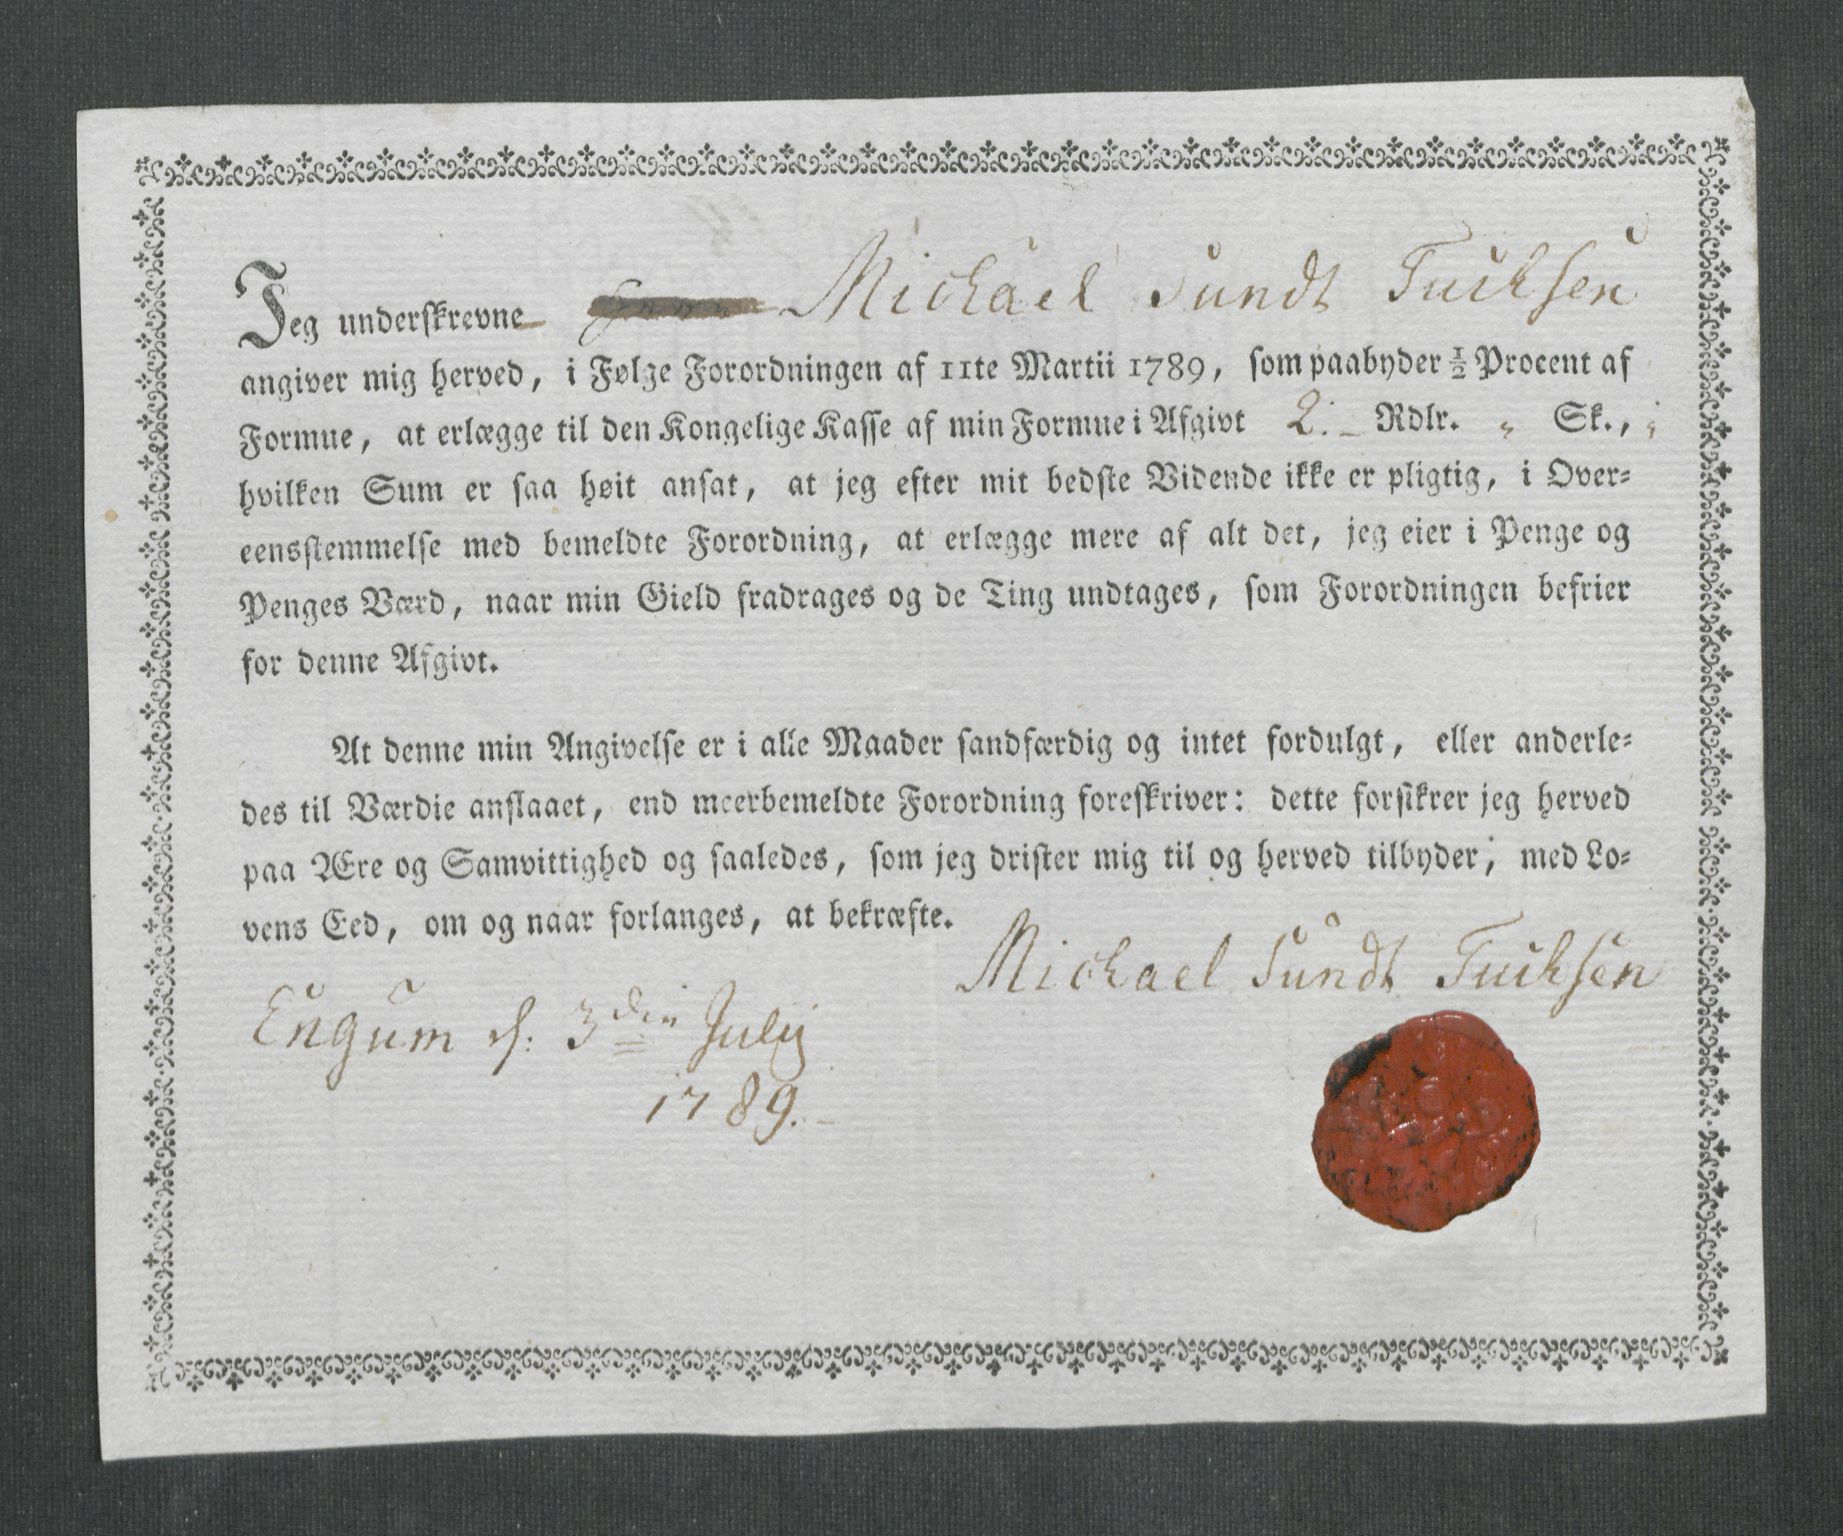 Jeg underskrevne Michael Sundt Tuchsen
angiver mig herved, i Følge Forordningen af 11te Martii 1789, som paabyder ½ Procent af
Formue, at erlægge til den Kongelige Kasse af min Formue i Afgivt 2. Rdlr. " Sk.,
hvilken Sum er saa høit ansat, at jeg efter mit bedste Vidende ikke er pligtig, i Over=
eensstemmelse med bemeldte Forordning, at erlægge mere af alt det, jeg eier i Penge og
Penges Værd, naar min Gield fradrages og de Ting undtages, som Forordningen befrier
for denne Afgivt.
At denne min Angivelse er i alle Maader sandfærdig og intet fordulgt, eller anderle=
des til Værdie anslaaet, end meerbemeldte Forordning foreskriver: dette forsikrer jeg herved
paa Ære og Samvittighed og saaledes, som jeg drister mig til og herved tilbyder, med Lo=
vens Eed, om og naar forlanges, at bekræfte.
Michael Sundt Tuchsen
Engum d: 3den Julij
1789.